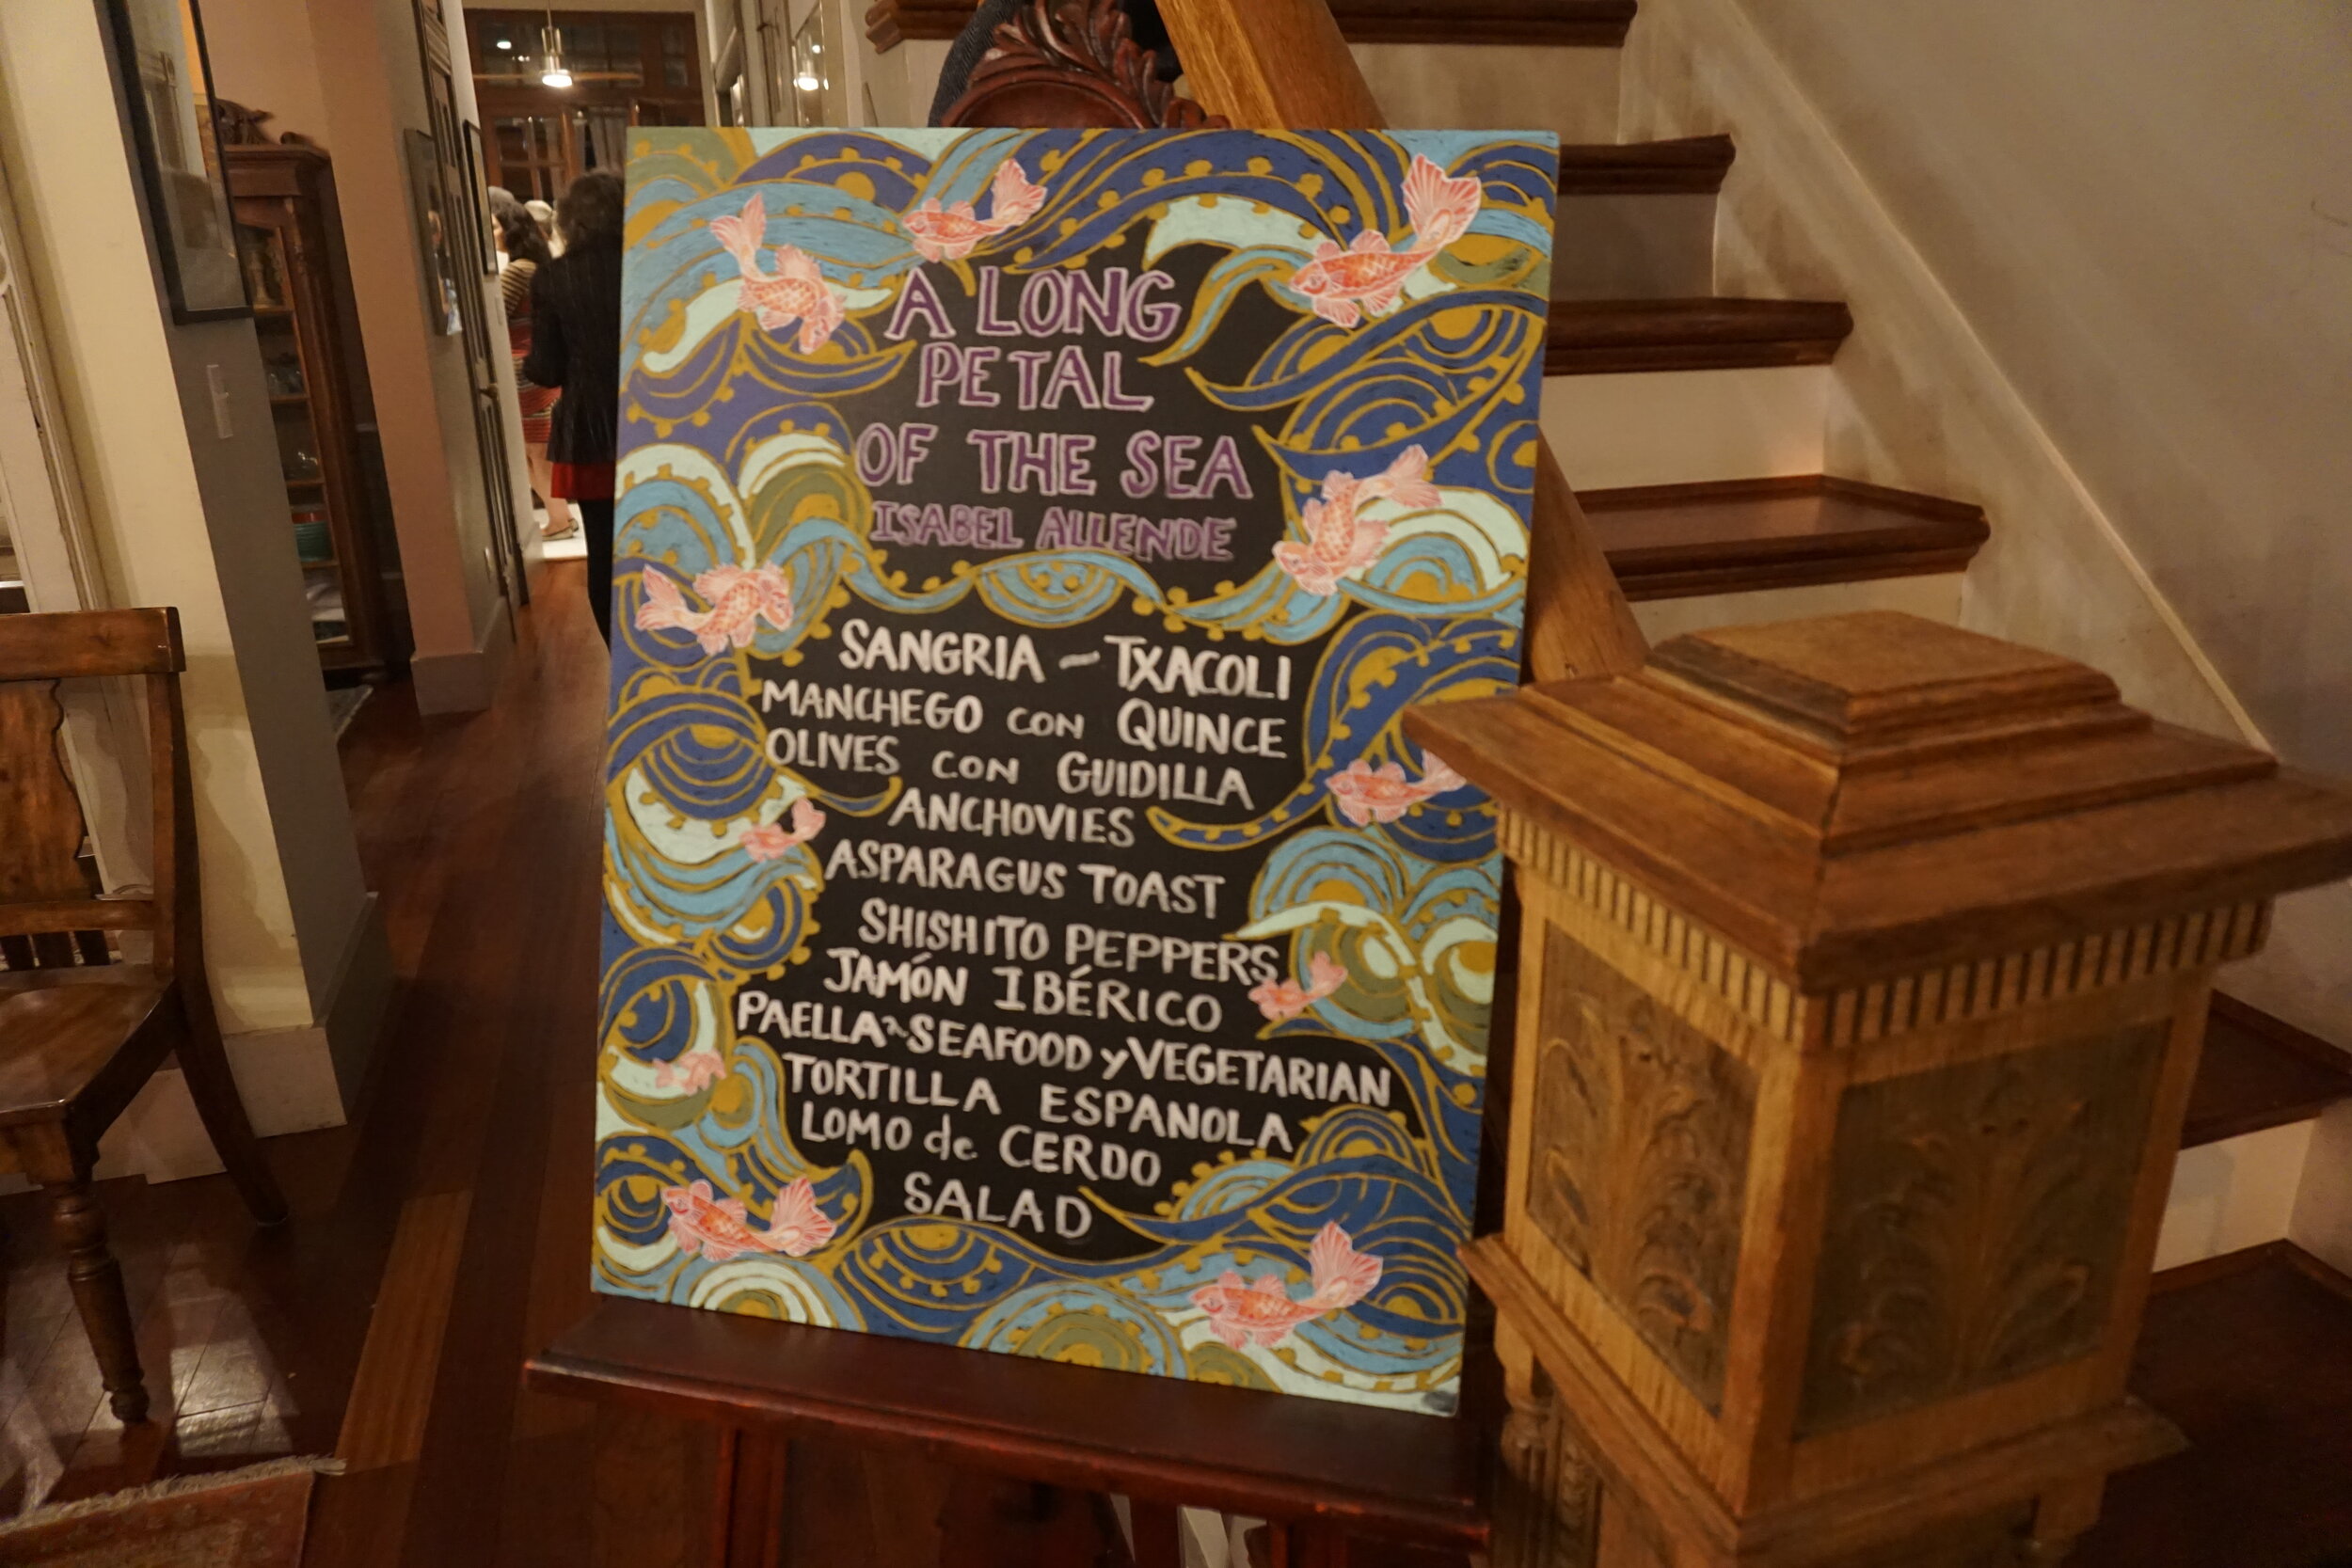 A LONG
PETAL
OF THE SEA
ISABEL ALLENDE
SANGRIA - TXACOLI
MANCHEGO CON QUINCE
OLIVES CON GUIDILLA
ANCHOVIES
ASPARAGUS TOAST
SHISHITO PEPPERS
JAMÓN IBÉRICO
PAELLA ~ SEAFOOD y VEGETARIAN
TORTILLA ESPANOLA
LOMO de CERDO
SALAD